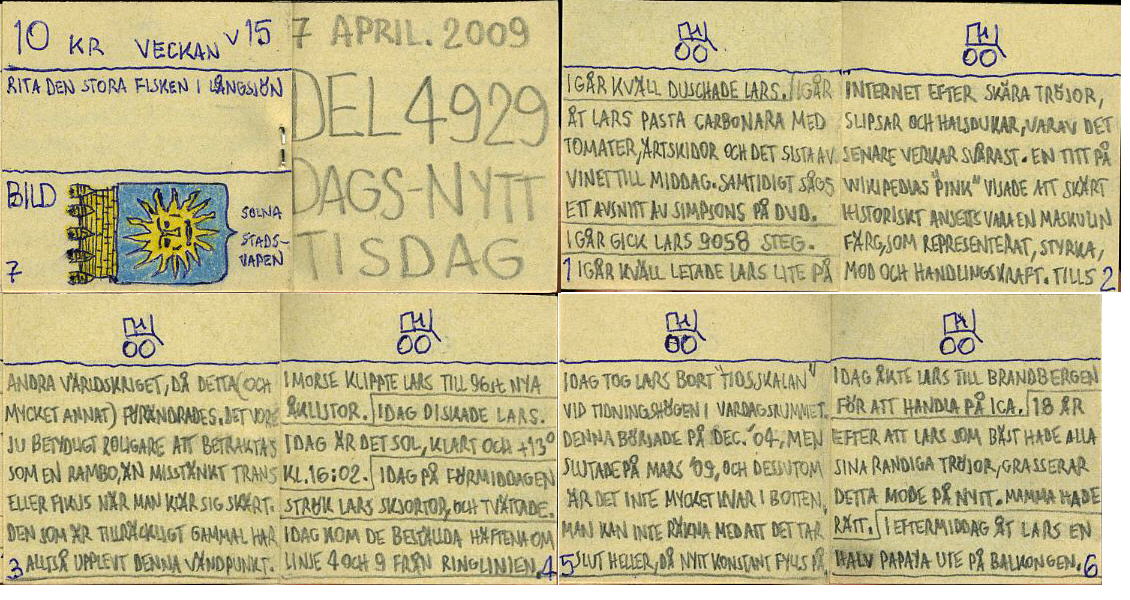 10 KR VECKAN V15
RITA DEN STORA FISKEN I LÅNGSJÖN
BILD
SOLNA
STADS-
VAPEN
7
7 APRIL. 2009
DEL 4929
DAGS-NYTT
TISDAG
IGÅR KVÄLL DUSCHADE LARS. IGÅR
ÅT LARS PASTA CARBONARA MED
TOMATER, ÄRTSKIDOR OCH DET SISTA AV
VINET TILL MIDDAG. SAMTIDIGT SÅGS
ETT AVSNITT AV SIMPSONS PÅ DVD.
IGÅR GICK LARS 9058 STEG.
1 IGÅR KVÄLL LETADE LARS LITE PÅ
INTERNET EFTER SKÄRA TRÖJOR,
SLIPSAR OCH HALSDUKAR, VARAV DET
SENARE VERKAR SVÅRAST. EN TITT PÅ
WIKIPEDIAS "PINK" VISADE ATT SKÄRT
HISTORISKT ANSETTS VARA EN MASKULIN
FÄRG, SOM REPRESENTERAT, STYRKA,
MOD OCH HANDLINGSKRAFT. TILLS 2
ANDRA VÄRLDSKRIGET, DÅ DETTA (OCH
MYCKET ANNAT) FÖRÄNDRADES. DET VORE
JU BETYDLIGT ROLIGARE ATT BETRAKTAS
SOM EN RAMBO, ÄN MISSTÄNKT TRANS
ELLER FIKUS NÄR MAN KLÄR SIG SKÄRT.
DEN SOM ÄR TILLRÄCKLIGT GAMMAL HAR
3 ALLTSÅ UPPLEVT DENNA VÄNDPUNKT.
I MORSE KLIPPTE LARS TILL 96 ST NYA
ÅKLISTOR. IDAG DISKADE LARS.
IDAG ÄR DET SOL, KLART OCH +13°
KL. 16:02. IDAG PÅ FÖRMIDDAGEN
STRÖK LARS SKJORTOR, OCH TVÄTTADE.
IDAG KOM DE BESTÄLLDA HÄFTENA OM
LINJE 4 OCH 9 FRÅN RINGLINIEN. 4
IDAG TOG LARS BORT "TIDSSKALAN"
VID TIDNINGSHÖGEN I VARDAGSRUMMET.
DENNA BÖRJADE PÅ DEC. '04, MEN
SLUTADE PÅ MARS '09, OCH DESSUTOM
ÄR DET INTE MYCKET KVAR I BOTTEN.
MAN KAN INTE RÄKNA MED ATT DET TAR
5 SLUT HELLER, DÅ NYTT KONSTANT FYLLS PÅ
IDAG ÅKTE LARS TILL BRANDBERGEN
FÖR ATT HANDLA PÅ ICA. 18 ÅR
EFTER ATT LARS SOM BÄST HADE ALLA
SINA RANDIGA TRÖJOR, GRASSERAR
DETTA MODE PÅ NYTT. MAMMA HADE
RÄTT. I EFTERMIDDAG ÅT LARS EN
HALV PAPAYA UTE PÅ BALKONGEN. 6